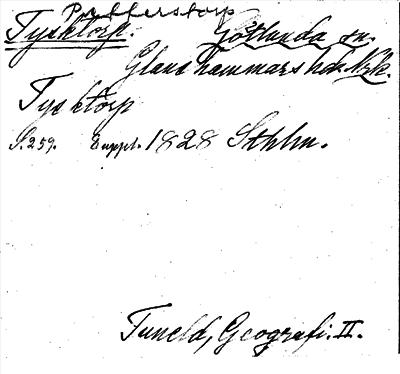 Pufferstorp
Tysktorp. Götlunda sn.
Glanshammars hd. Nrk.
Tysktorp
S. 259. 8 uppl. 1828 Sthlm.
Tuneld, Geografi. II.